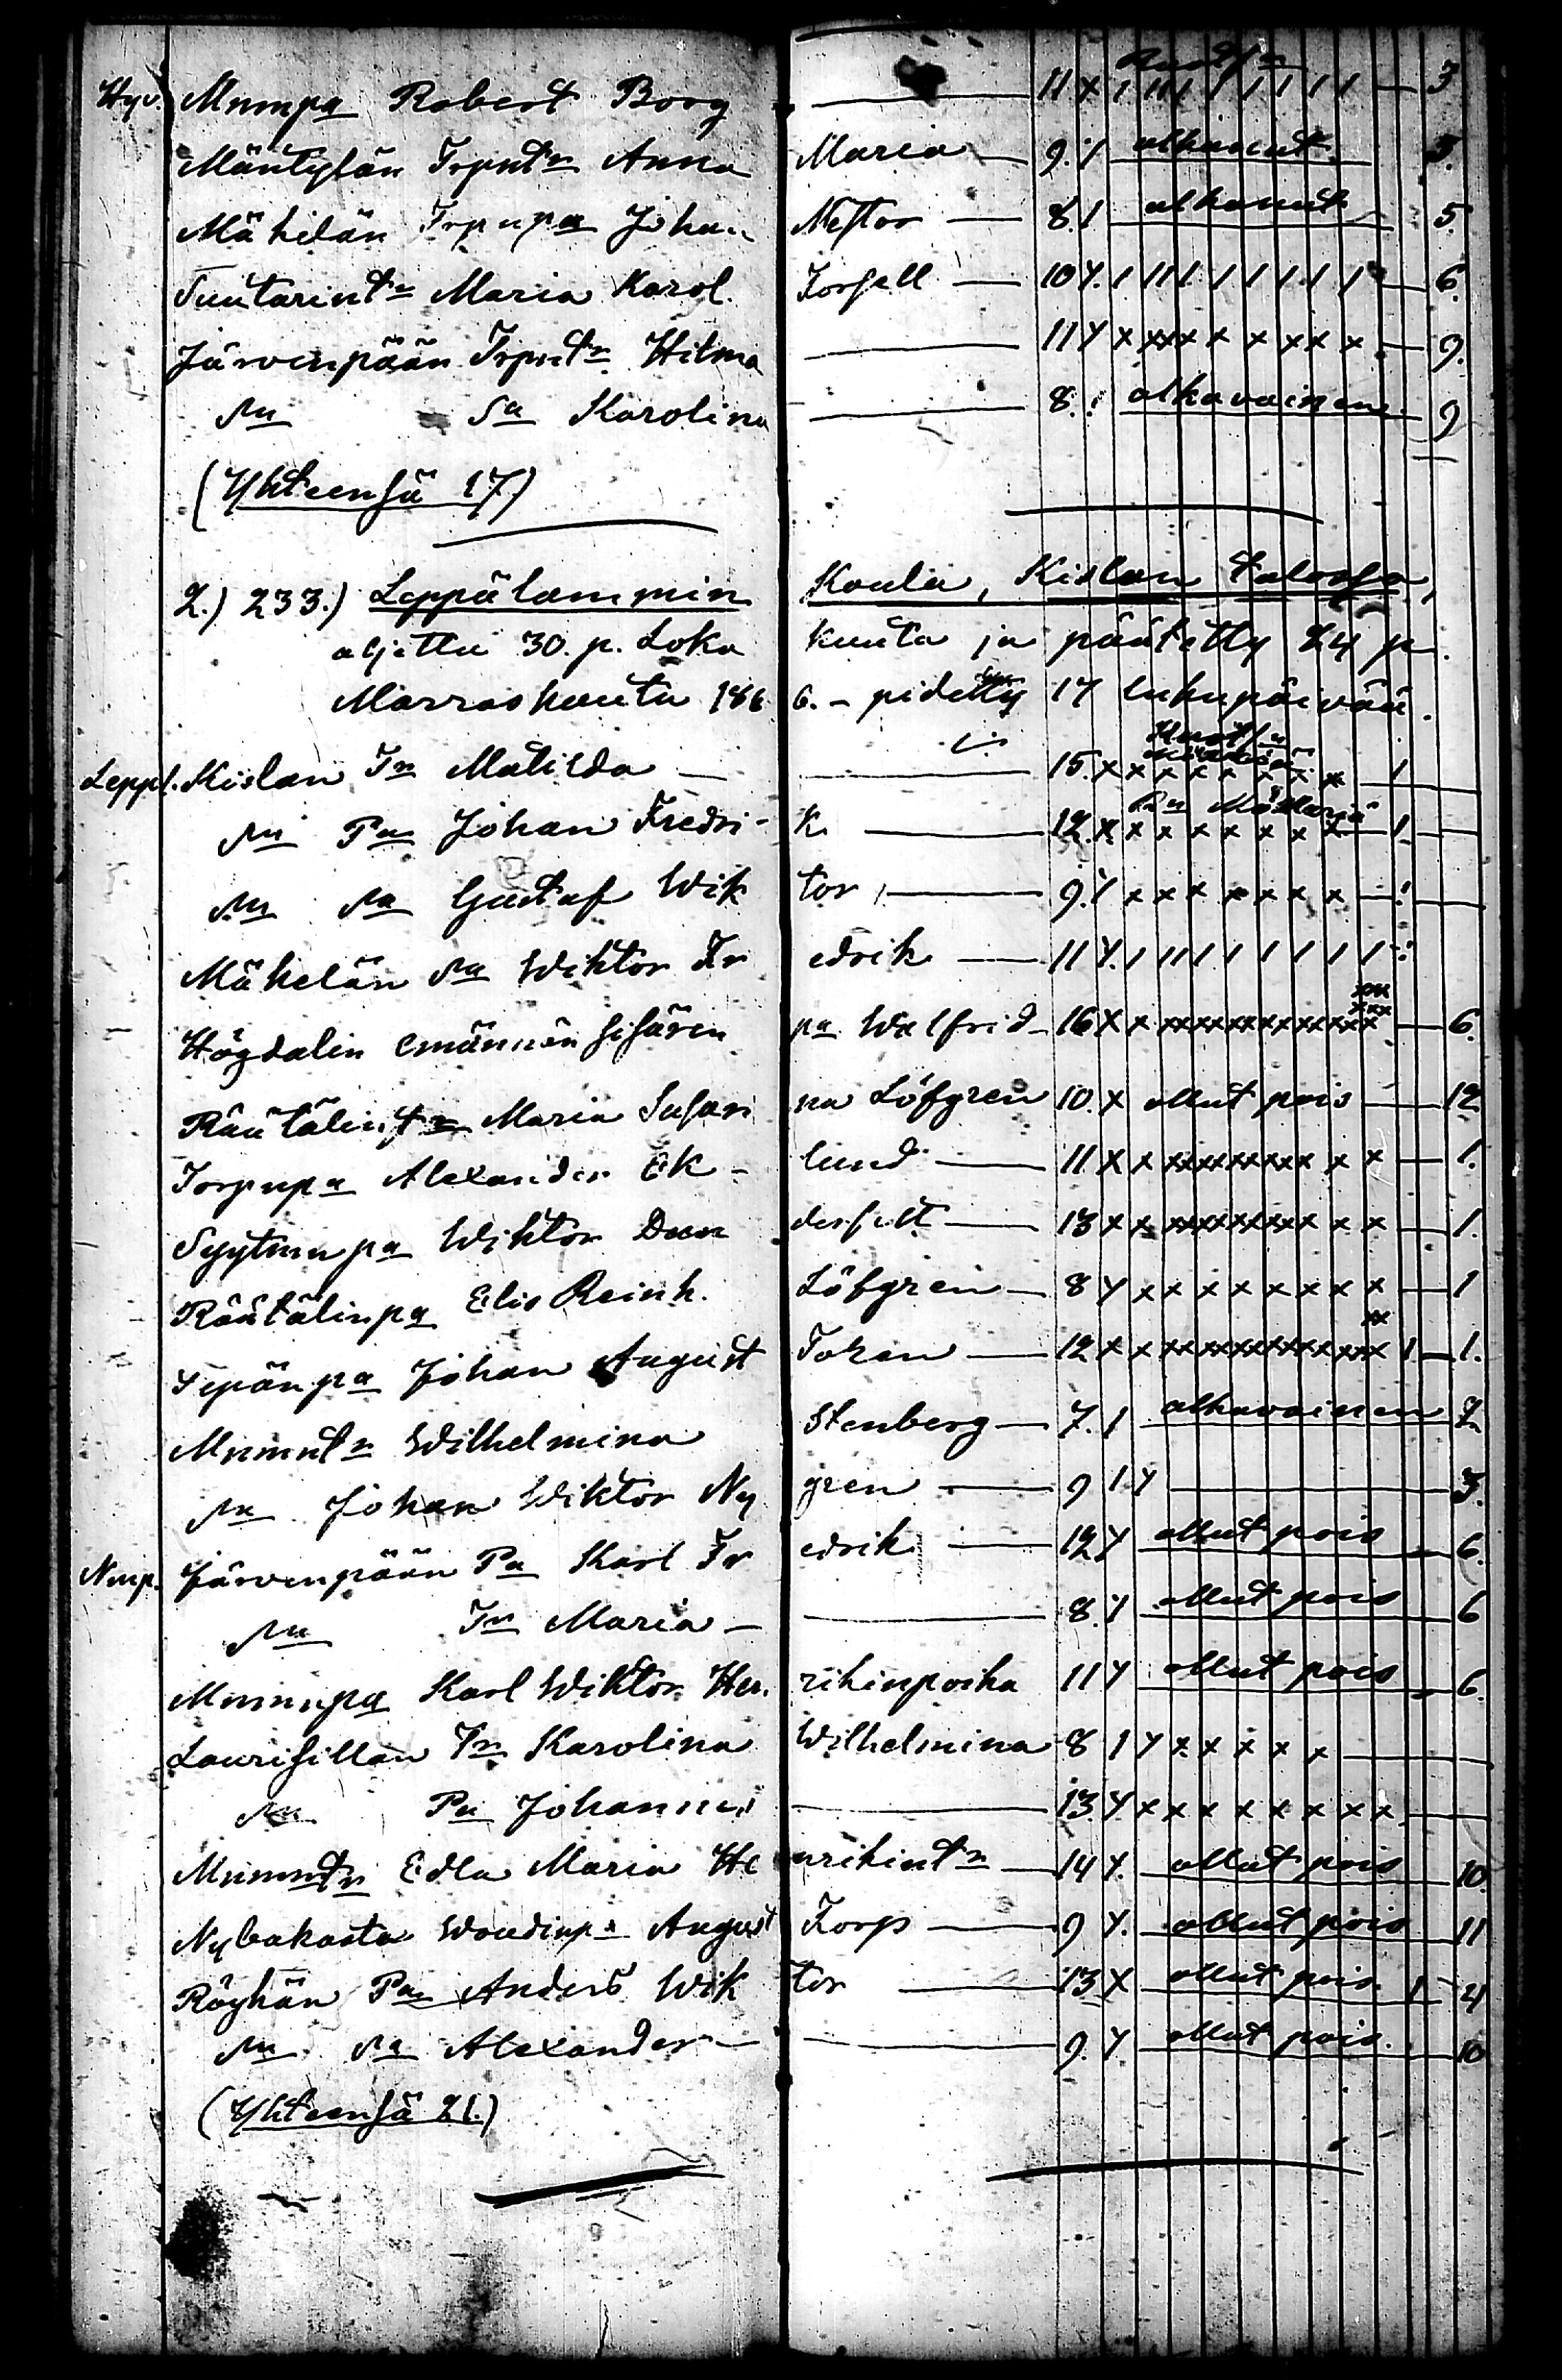 Hyv. Mnmpa Robert Borg — 11 X 1 1 1 1 1 1 1 1 1 — 3
Mäntylän Trpntr Anna Maria — 9. 1 alkanut. 5.
Mäkelän Trpnpa Johan Nestor — 8. 1 alkanut 5.
Suutarintr Maria Karol. Forsell — 10 Y. 1 1 1 1 1 1 1 1 1 — 6.
Järvenpään Trpntr Hilma — 11 Y x x x x x x x x x — 9.
sn sa Karolina — 8. 1 alkavainen 9
(Yhteensä 17)
2.) 233.) Leppälammin Koulu, Kislan talossa,
aljettu 30. p. Loka kuuta ja päätetty 24 p.
Marraskuuta 186 6. – pidetty 17 lukupäivää.
Leppl. Kislan Tr Matilda — 15. x x x x x x x x — 1
sn Pa Johan Fredri- k. — 12. x x x x x x x x — 1
sn sa Gustaf Wik tor — 9. Y x x x x x x x — 1
Mäkelän sa Wiktor Fr edrik — 11 Y. 1 1 1 1 1 1 1 1 1
Högdalin emännän sisaren pa Walfrid — 16 X x xxxxxxxxxxxxx — 6.
Räätälintr Maria Susan na Löfgren 10. X ollut pois — 12
Torpnpa Alexander Ek- lund — 11 X x xxxxxxxxx x x — 1.
Syytmnpa Wiktor Dun derfelt — 13 X x xxxxxxxxx x x — 1.
Räätälinpa Elis Reinh. Löfgren — 8 Y x x x x x x x x — 1
Sepänpa Johan August — 12 X x xxxxxxxxxxxxx 1 — 1.
Mnmntr Wilhelmina Stenberg — 7. 1 alkavainen 7
sn Johan Wiktor Ny gren — 9 1 Y — 3.
Nmp. Järvenpään Pa Karl Fr edrik — 12 Y ollut pois — 6.
sn Tr Maria — 8. Y ollut pois 6
Mnmnpa Karl Wiktor Hen. rikinpoika 11 Y ollut pois — 6.
Laurisillan Tr Karolina Wilhelmina 8 1 Y x x x x x —
sn Pa Johannes — 13 Y x x x x x x x x
Mnmntr Edla Maria He nrikintr — 14 Y. ollut pois 10.
Nybakasta Woudinpa August Forss — 9 Y. ollut pois 11
Röyhän Pa Anders Wik tor — 13 X ollut pois. 1 — 4
sn sa Alexander — 9. Y ollut pois. 10
(Yhteensä 21.)